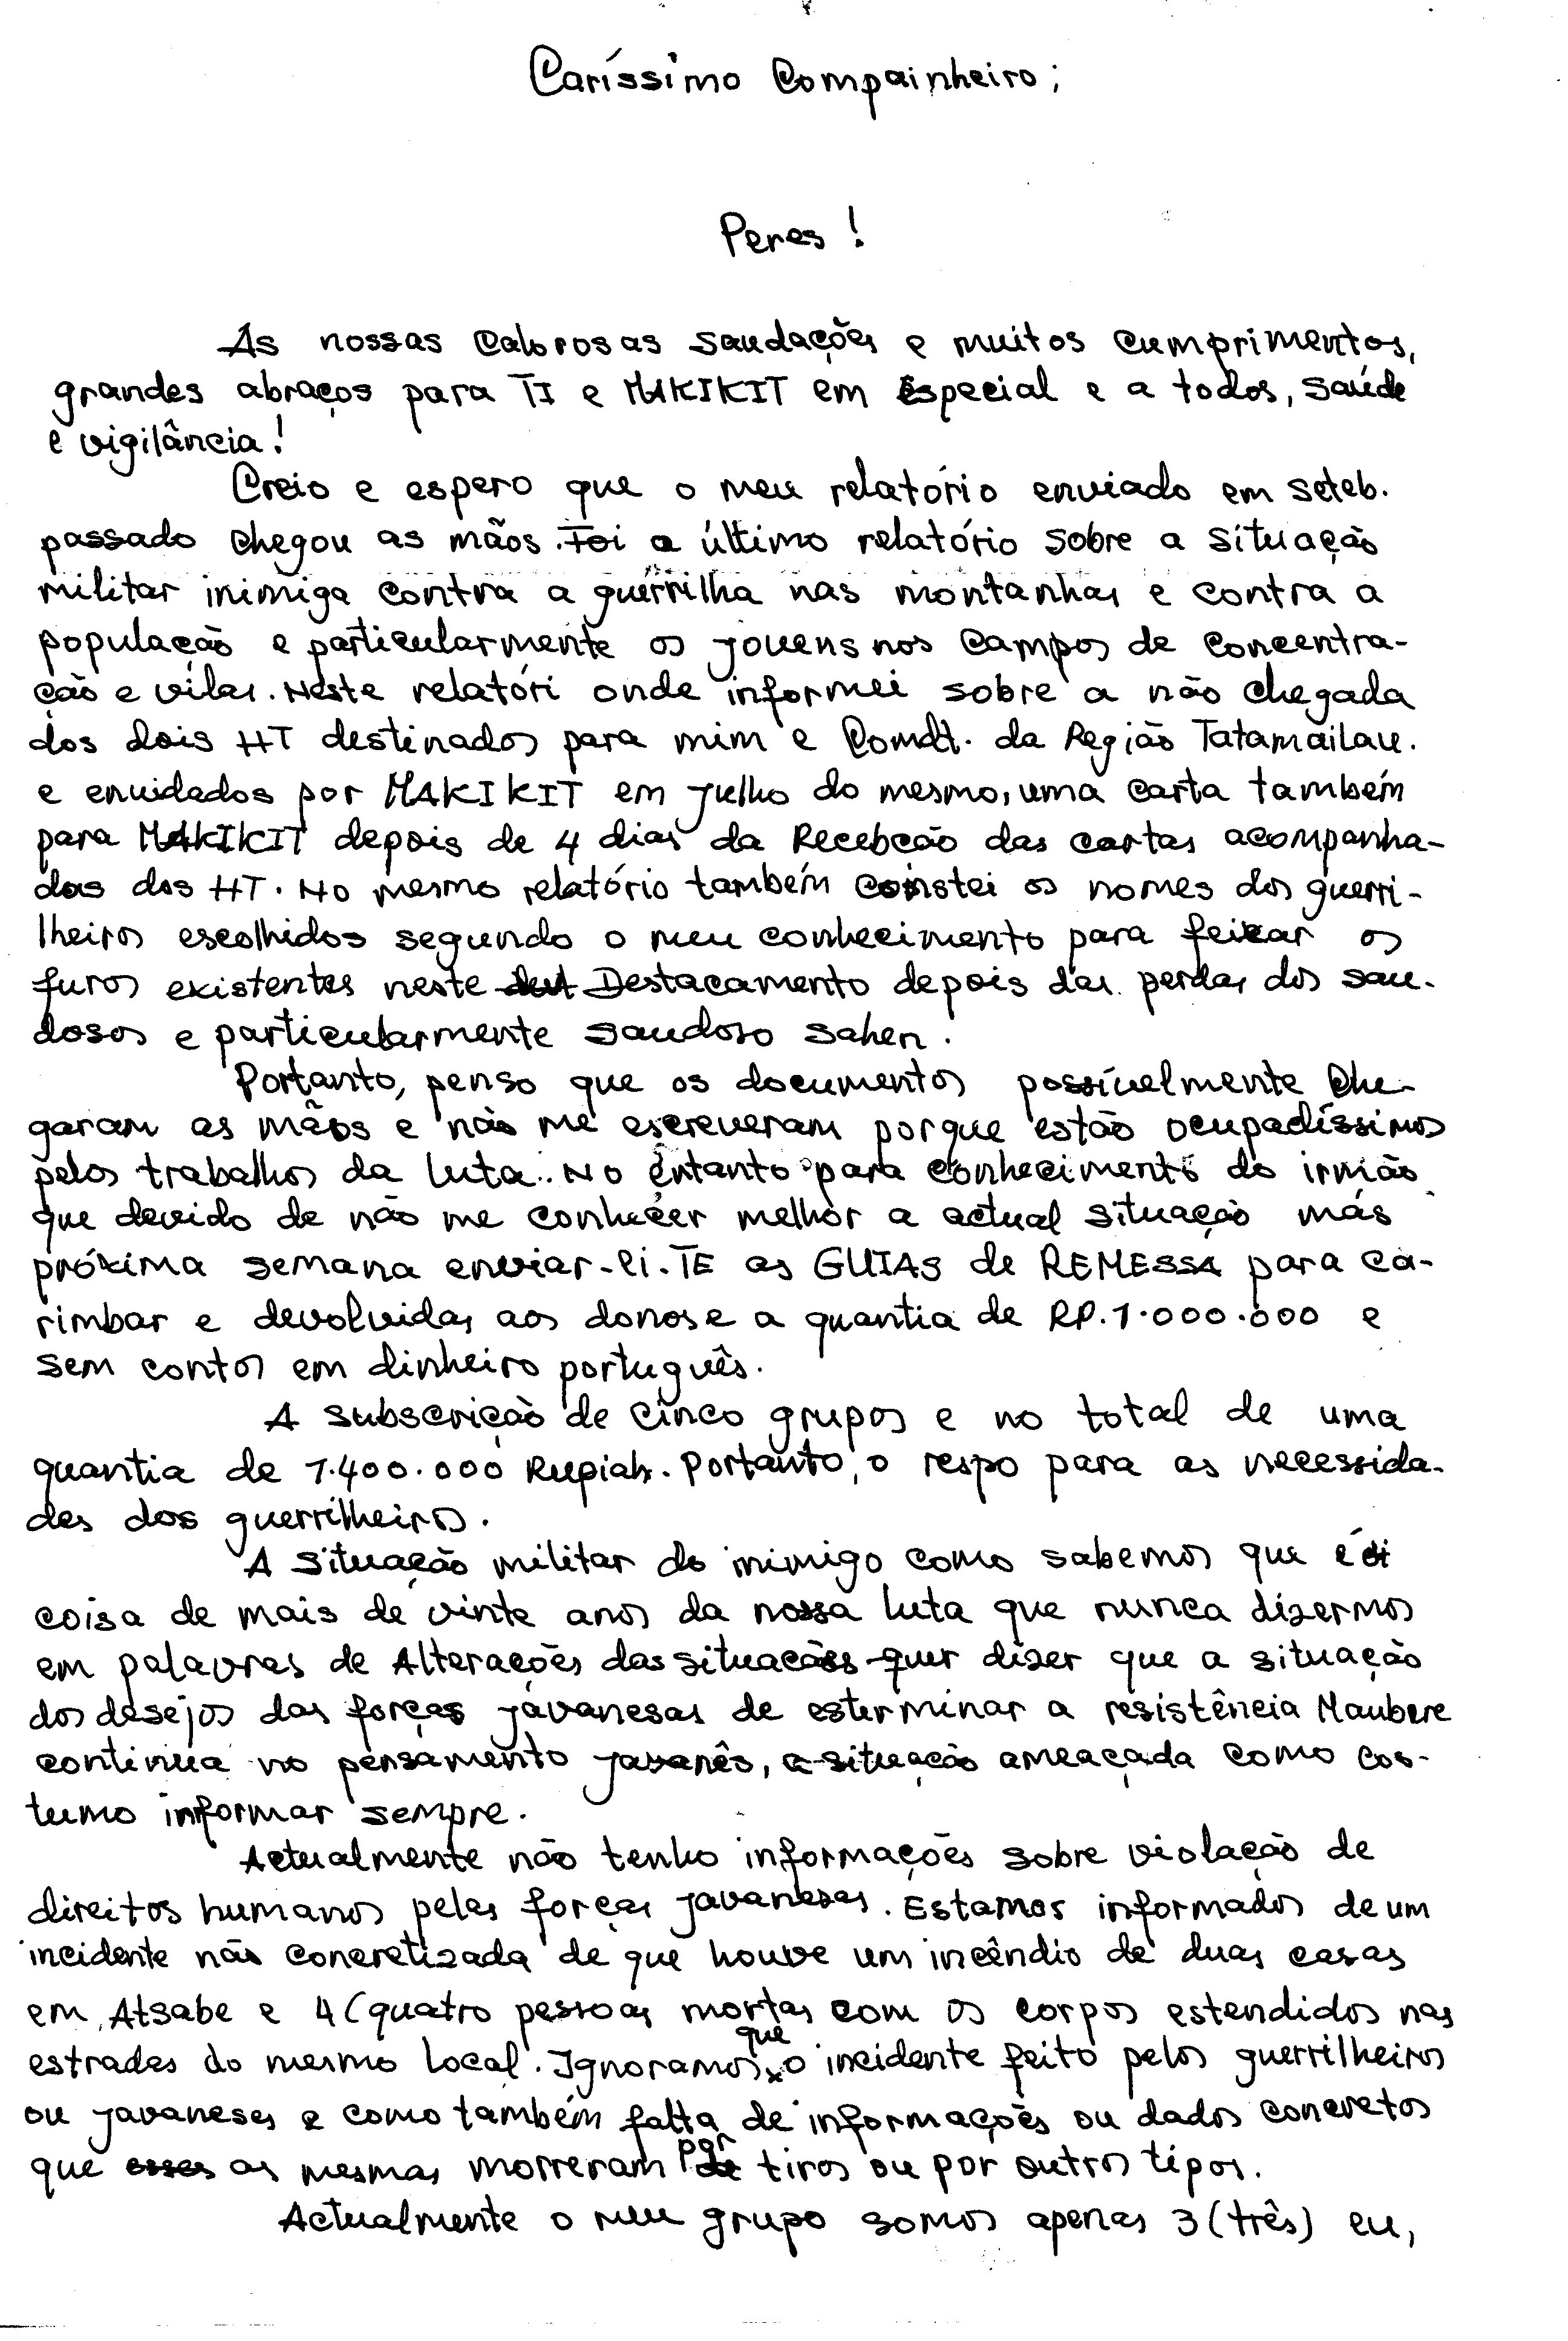 Caríssimo Compainheiro;
Peres!
As nossas calorosas saudações e muitos cumprimentos,
grandes abraços para TI e MAKIKIT em Especial e a todos, saúde
e vigilância!
Creio e espero que o meu relatório enviado em seteb.
passado chegou as mãos. Foi o último relatório sobre a situação
militar inimiga contra a guerrilha nas montanhas e contra a
população e particularmente os jovens nos campos de concentra-
ção e vilas. Neste relatóri onde informei sobre a não chegada
dos dois HT destinados para mim e Comdt. da Região Tatamailau.
e envidados por MAKIKIT em Julho do mesmo, uma carta também
para MAKIKIT depois de 4 dias da Recebção das cartas acompanha-
das dos HT. No mesmo relatório também constei os nomes dos guerri-
lheiros escolhidos segundo o meu conhecimento para feixar os
furos existentes neste Destacamento depois das perdas dos sau-
dosos e particularmente saudoso Sahen.
Portanto, penso que os documentos possívelmente che-
garam as mãos e não me escreveram porque estão ocupadíssimos
pelos trabalhos da luta. No entanto para conhecimento do irmão
que devido de não me conhecer melhor a actual situação mas
próxima semana enviar-li-TE as GUIAS de REMESSA para ca-
rimbar e devolvidas aos donos e a quantia de RP.1.000.000 e
sem contos em dinheiro português.
A subscrição de cinco grupos e no total de uma
quantia de 1.400.000 Rupiah. Portanto, o respo para as necessida-
des dos guerrilheiros.
A situação militar do inimigo como sabemos que é
coisa de mais de vinte anos da nossa luta que nunca dizermos
em palavras de Alterações das situacões quer dizer que a situação
dos desejos das forças javanesas de esterminar a resistência Maubere
continúa no pensamento javanês, a situação ameaçada como cos-
tumo informar sempre.
Actualmente não tenho informações sobre violação de
direitos humanos pelas forças javanesas. Estamos informados de um
incidente não concretizada de que houve um incêndio de duas casas
em Atsabe e 4 (quatro pessoas mortas com os corpos estendidos nas
estradas do mesmo local. Ignoramos que o incidente feito pelos guerrilheiros
ou javaneses e como também falta de informações ou dados concretos
que as mesmas morreram por tiros ou por outros tipos.
Actualmente o meu grupo somos apenas 3 (três) eu,